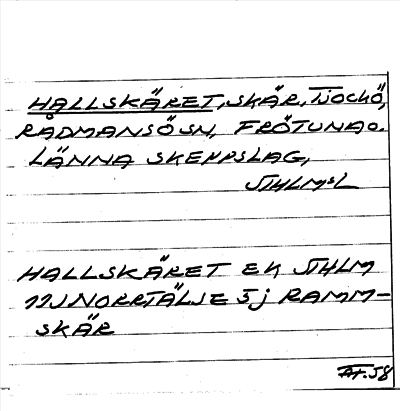 HALLSKÄRET, SKÄR, Tjockö,
RÅDMANSÖ SN, FRÖTUNA o.
LÄNNA SKEPPSLAG,
STHLMSL
HALLSKÄRET EK STHLM
11J NORRTÄLJE 5j RAMM-
SKÄR